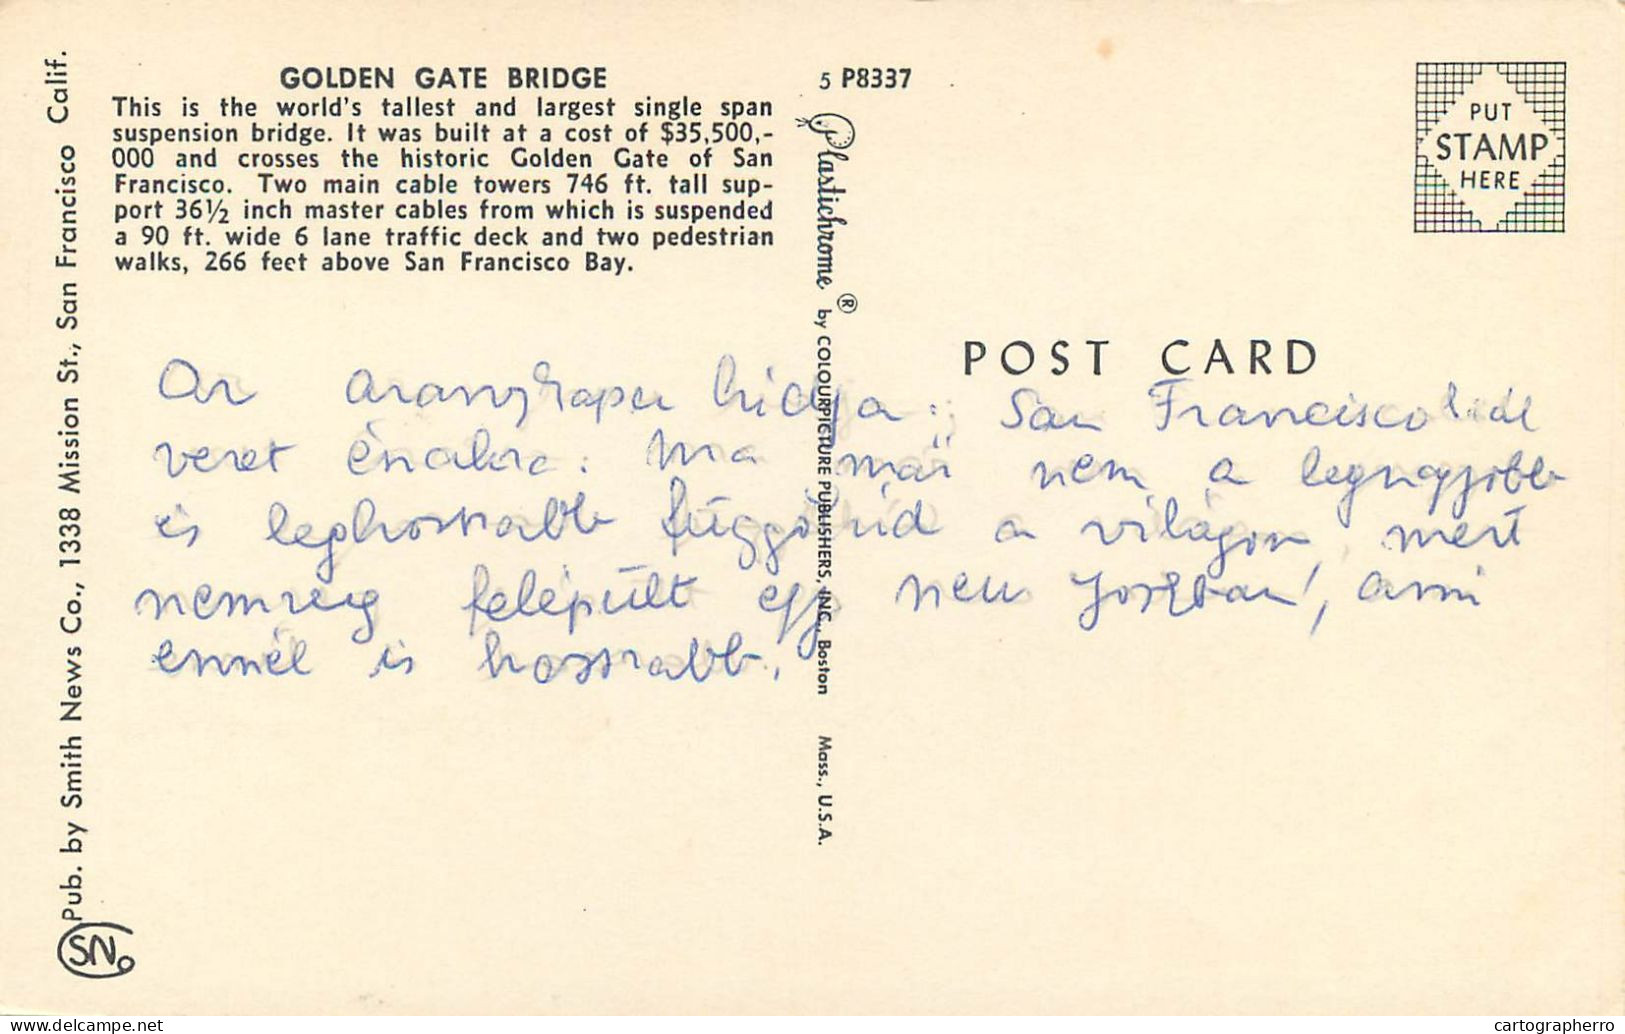 GOLDEN GATE BRIDGE
This is the world's tallest and largest single span
suspension bridge. It was built at a cost of $35,500,-
000 and crosses the historic Golden Gate of San
Francisco. Two main cable towers 746 ft. tall sup-
port 36½ inch master cables from which is suspended
a 90 ft. wide 6 lane traffic deck and two pedestrian
walks, 266 feet above San Francisco Bay.
5 P8337
PUT
STAMP
HERE
POST CARD
Az aranykapu hídja: San Francisco
északra. Ma már nem a legnagyobb
és leghosszabb függőhíd a világon, mert
nemrég felépült egy new yorkban, ami
ennél is hosszabb.
Pub. by Smith News Co., 1338 Mission St., San Francisco Calif.
SNo
Plastichrome ® by COLOURPICTURE PUBLISHERS, INC., Boston Mass., U.S.A.
cartographerro